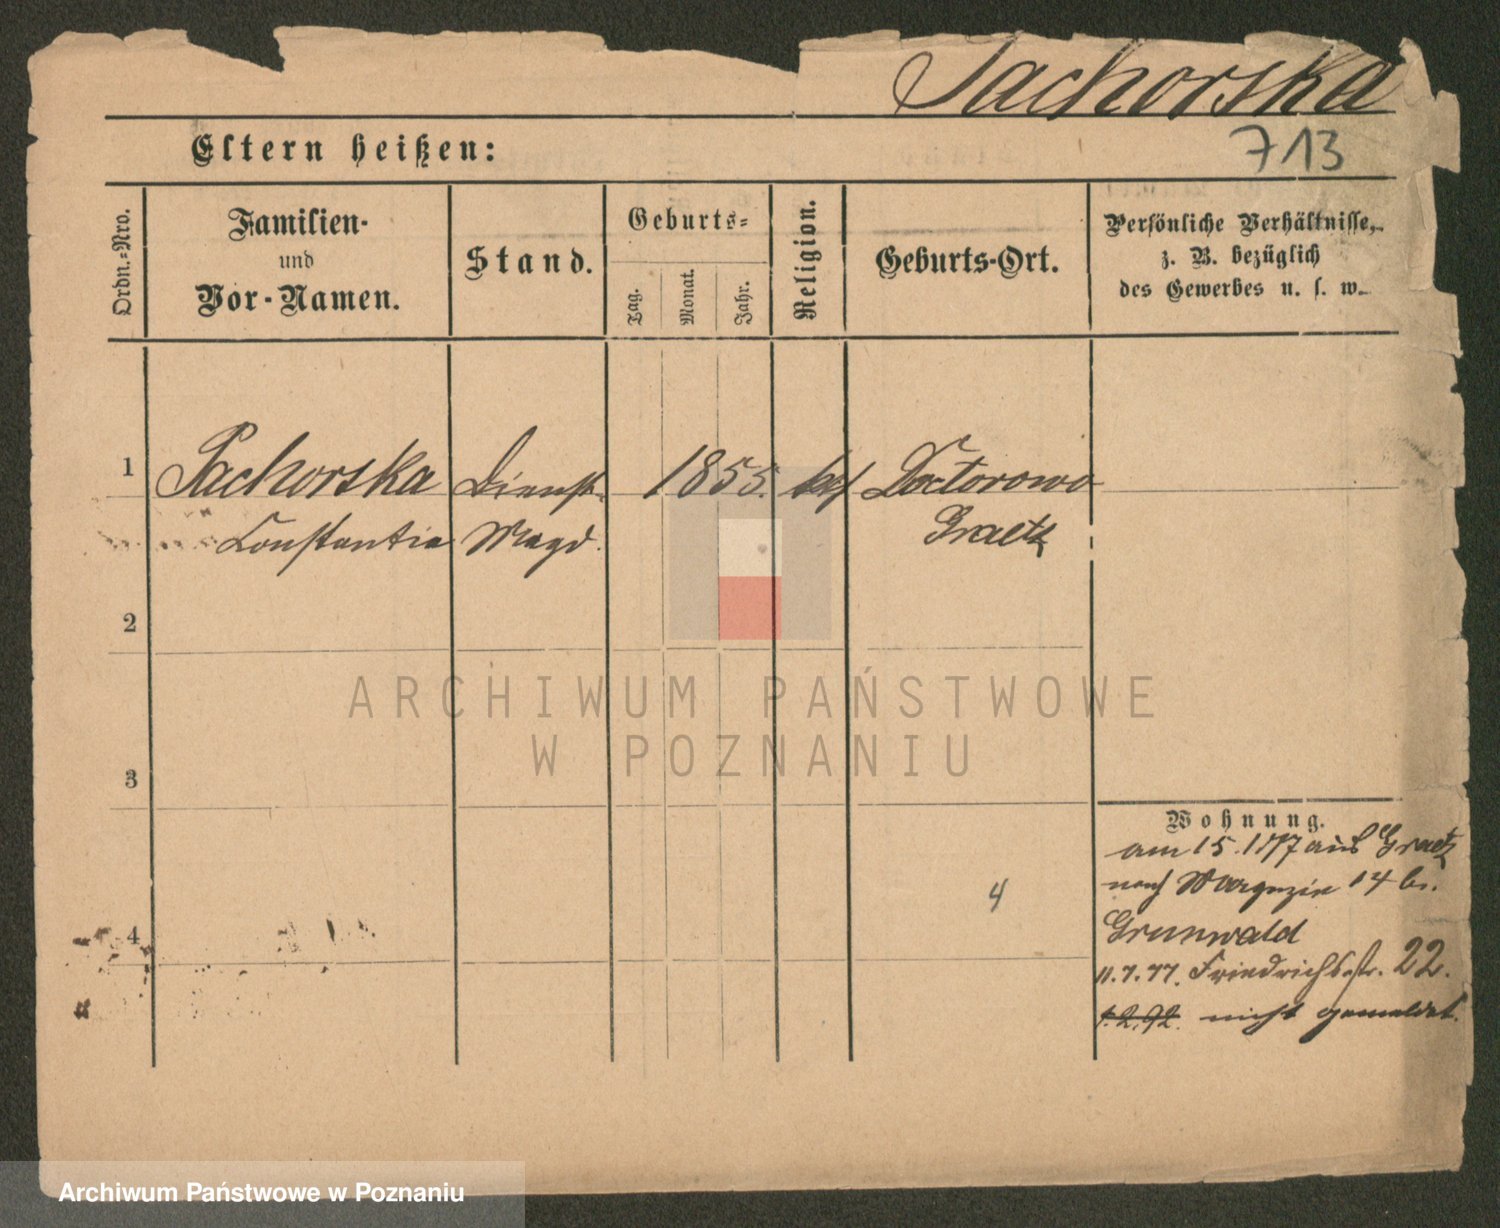 Pachorska
713
Eltern heißen:
Ordn.-Nro.
Familien-
und
Vor-Namen.
Stand.
Geburts-
Tag.
Monat.
Jahr.
Religion.
Geburts-Ort.
Persönliche Verhältnisse,
z. B. bezüglich
des Gewerbes u. s. w.
1 Pachorska Dienst- 1855. kat Doctorowo
Constantia Magd. Graetz
2
3
Wohnung.
am 15.1.77 aus Graetz
nach Magazin 14 bei
Grunwald
4
11.7.77. Friedrichsstr. 22.
1.2.92. nicht gemeldet.
4
ARCHIWUM PAŃSTWOWE
W POZNANIU
Archiwum Państwowe w Poznaniu